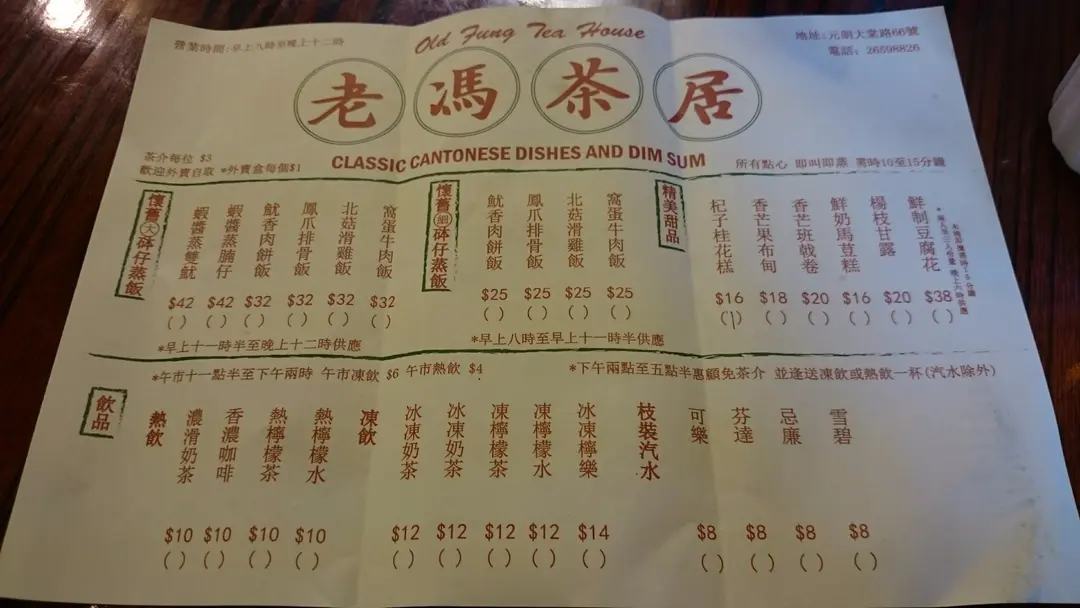 Old Fung Tea House
營業時間:早上八時至晚上十二時
地址:元朗大棠路66號
電話: 26598826
老馮茶居
CLASSIC CANTONESE DISHES AND DIM SUM
茶介每位 $3
歡迎外賣自取 *外賣盒每個$1
所有點心 即叫即蒸 需時10至15分鐘
懷舊(大)砵仔蒸飯
蝦醬蒸雙魷 $42 ( )
蝦醬蒸腩仔 $42 ( )
魷香肉餅飯 $32 ( )
鳳爪排骨飯 $32 ( )
北菇滑雞飯 $32 ( )
窩蛋牛肉飯 $32 ( )
*早上十一時半至晚上十二時供應
懷舊(細)砵仔蒸飯
魷香肉餅飯 $25 ( )
鳳爪排骨飯 $25 ( )
北菇滑雞飯 $25 ( )
窩蛋牛肉飯 $25 ( )
*早上八時至早上十一時半供應
精美甜品
杞子桂花糕 $16 ( )
香芒果布甸 $18 ( )
香芒班戟卷 $20 ( )
鮮奶馬荳糕 $16 ( )
楊枝甘露 $20 ( )
鮮制豆腐花 $38 ( )
*午市十一點半至下午兩時 午市凍飲 $6 午市熱飲 $4
*下午兩點至五點半惠顧免茶介 並逢送凍飲或熱飲一杯(汽水除外)
飲品
熱飲
濃滑奶茶 $10 ( )
香濃咖啡 $10 ( )
熱檸檬茶 $10 ( )
熱檸檬水 $10 ( )
凍飲
冰凍奶茶 $12 ( )
冰凍奶茶 $12 ( )
凍檸檬茶 $12 ( )
凍檸檬水 $12 ( )
冰凍檸樂 $14 ( )
枝裝汽水
可樂 $8 ( )
芬達 $8 ( )
忌廉 $8 ( )
雪碧 $8 ( )